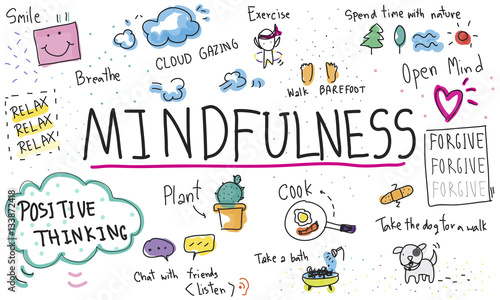 Smile
Exercise
Spend time with nature
CLOUD GAZING
Breathe
Walk BAREFOOT
Open Mind
RELAX
RELAX
RELAX
MINDFULNESS
FORGIVE
FORGIVE
FORGIVE
POSITIVE
THINKING
Plant
Cook
Chat with friends
<listen>
Take a bath
Take the dog for a walk
133872418